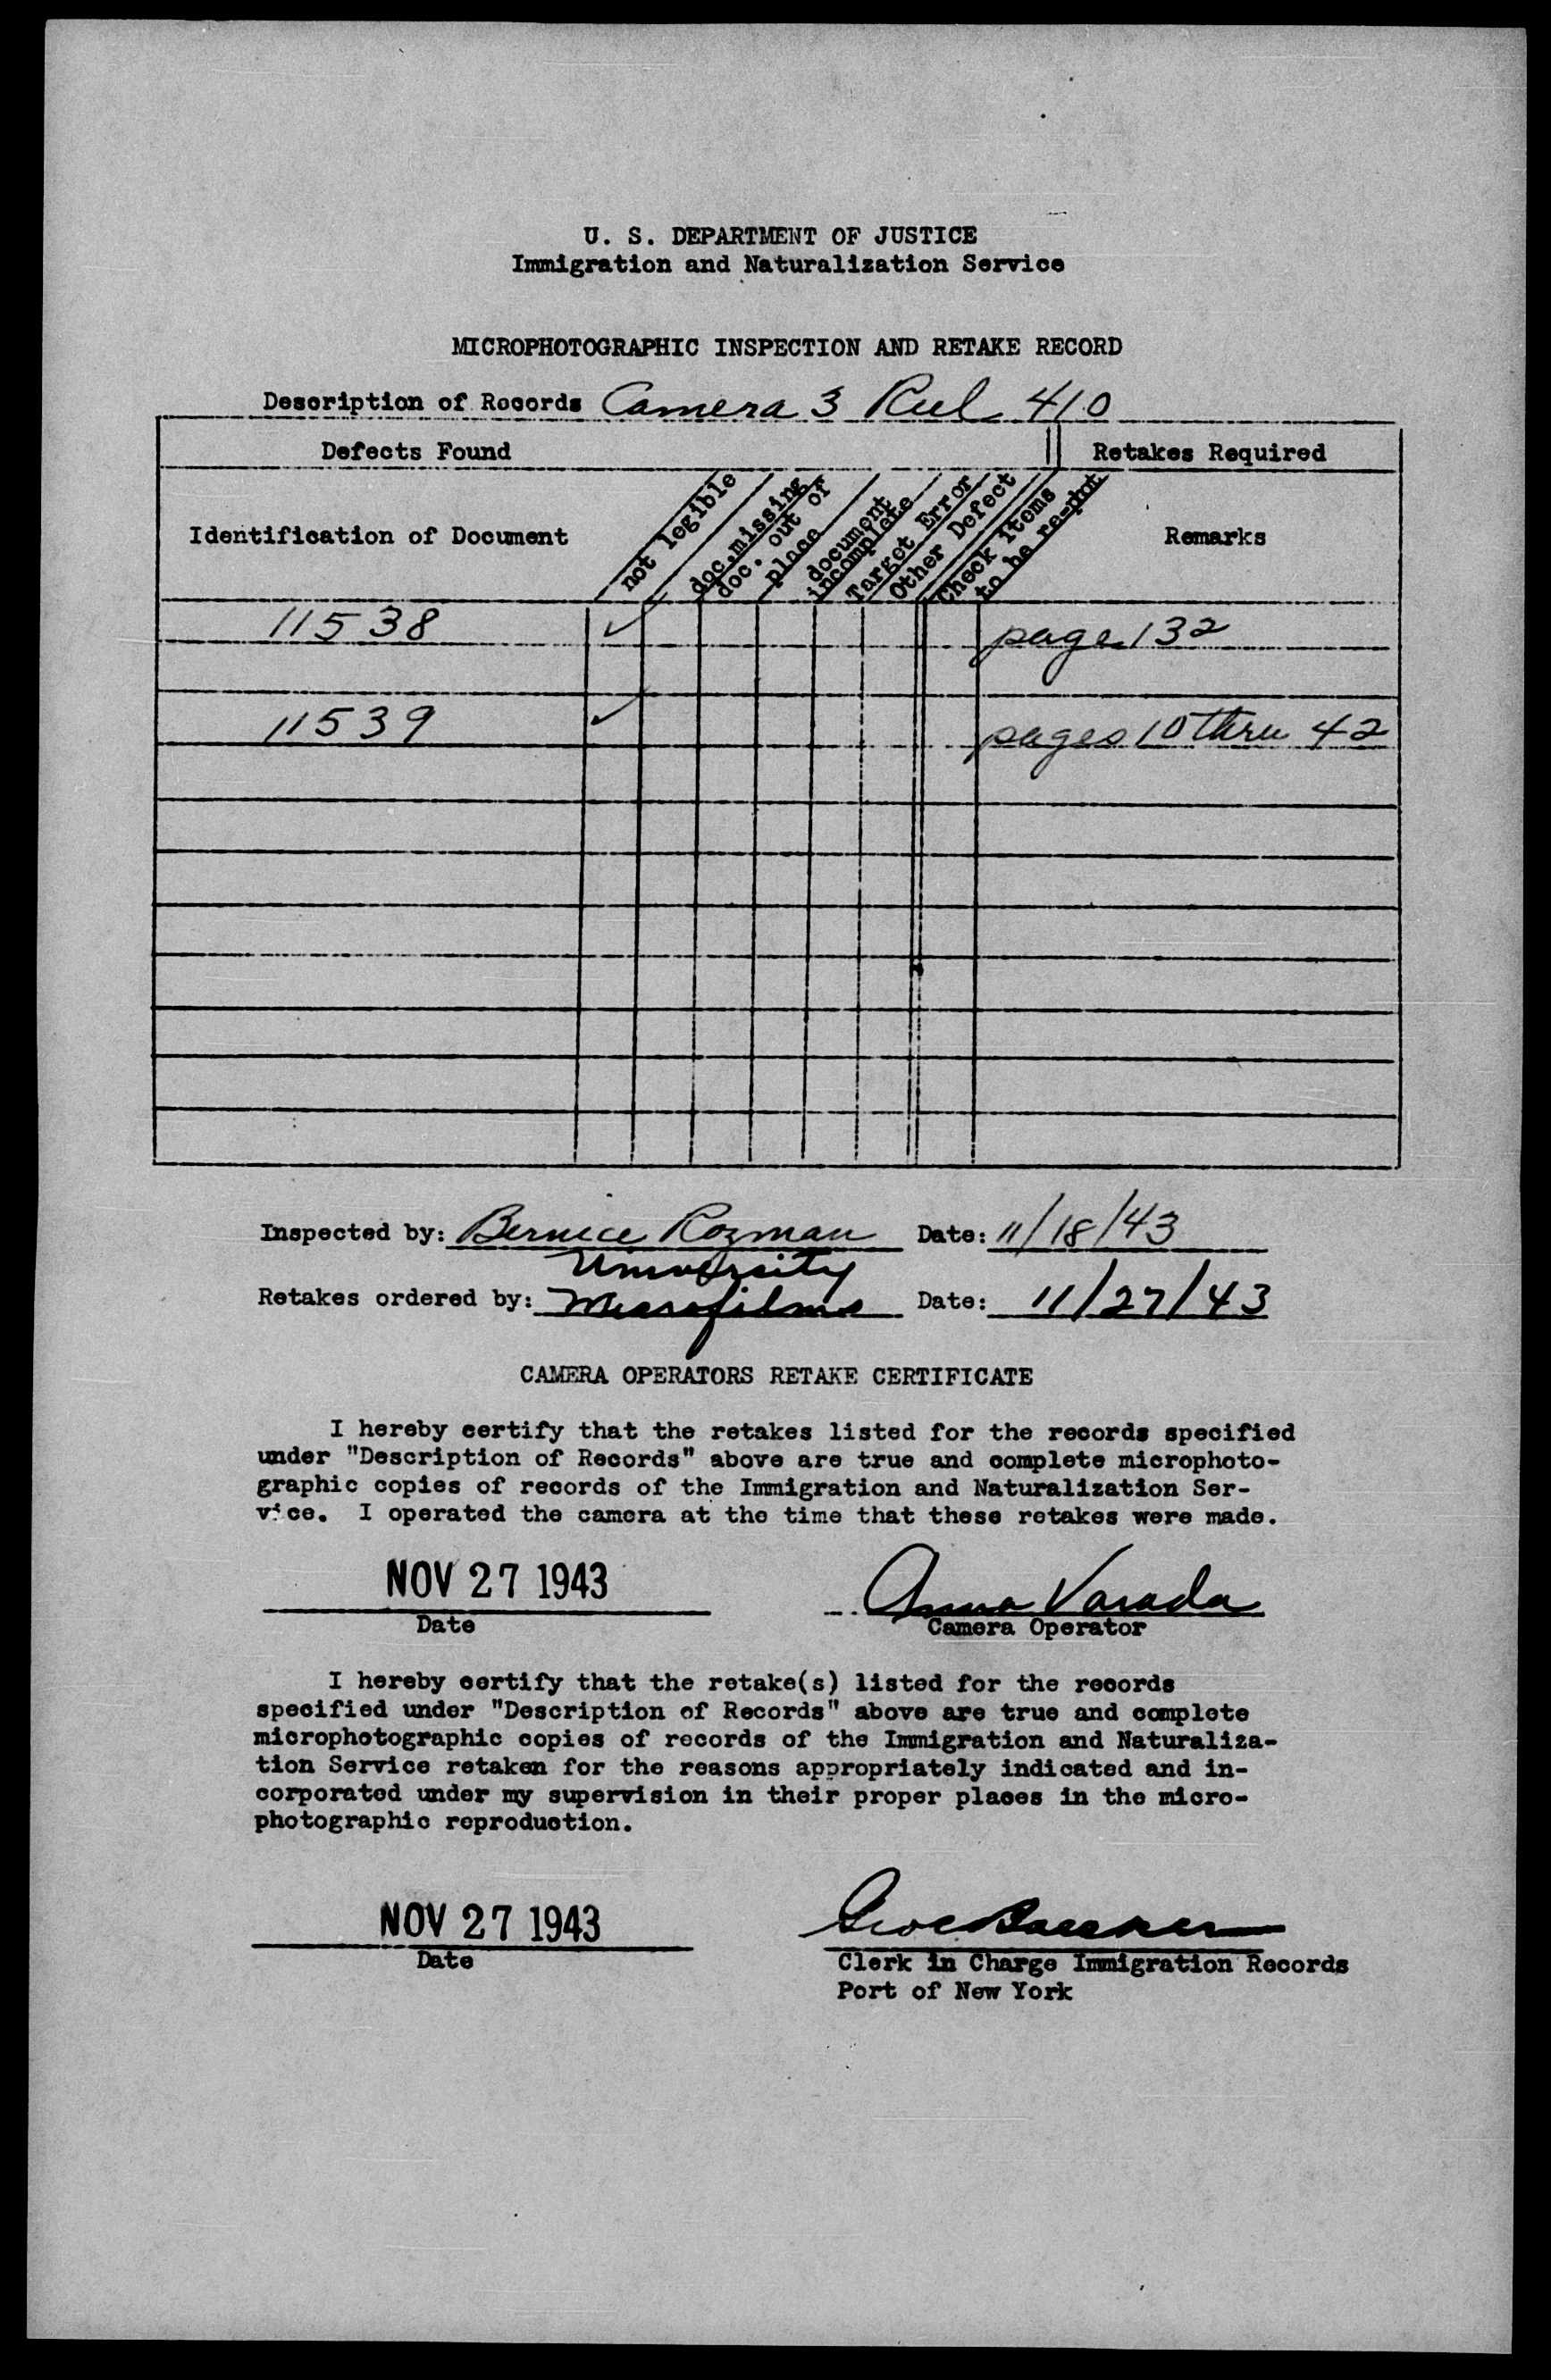 U. S. DEPARTMENT OF JUSTICE
Immigration and Naturalization Service
MICROPHOTOGRAPHIC INSPECTION AND RETAKE RECORD
Description of Records Camera 3 Reel 410
Defects Found
Retakes Required
Identification of Document
not legible
doc. missing
doc. out of
place
document
incomplete
Target Error
Other Defect
Check items
to be re-phot
Remarks
11538 ✓ page 132
11539 ✓ pages 10 thru 42
Inspected by: Bernice Rozman Date: 11/18/43
University
Retakes ordered by: Microfilms Date: 11/27/43
CAMERA OPERATORS RETAKE CERTIFICATE
I hereby certify that the retakes listed for the records specified
under "Description of Records" above are true and complete microphoto-
graphic copies of records of the Immigration and Naturalization Ser-
vice. I operated the camera at the time that these retakes were made.
NOV 27 1943 Anna Varada
Date Camera Operator
I hereby certify that the retake(s) listed for the records
specified under "Description of Records" above are true and complete
microphotographic copies of records of the Immigration and Naturaliza-
tion Service retaken for the reasons appropriately indicated and in-
corporated under my supervision in their proper places in the micro-
photographic reproduction.
NOV 27 1943
Date Clerk in Charge Immigration Records
Port of New York